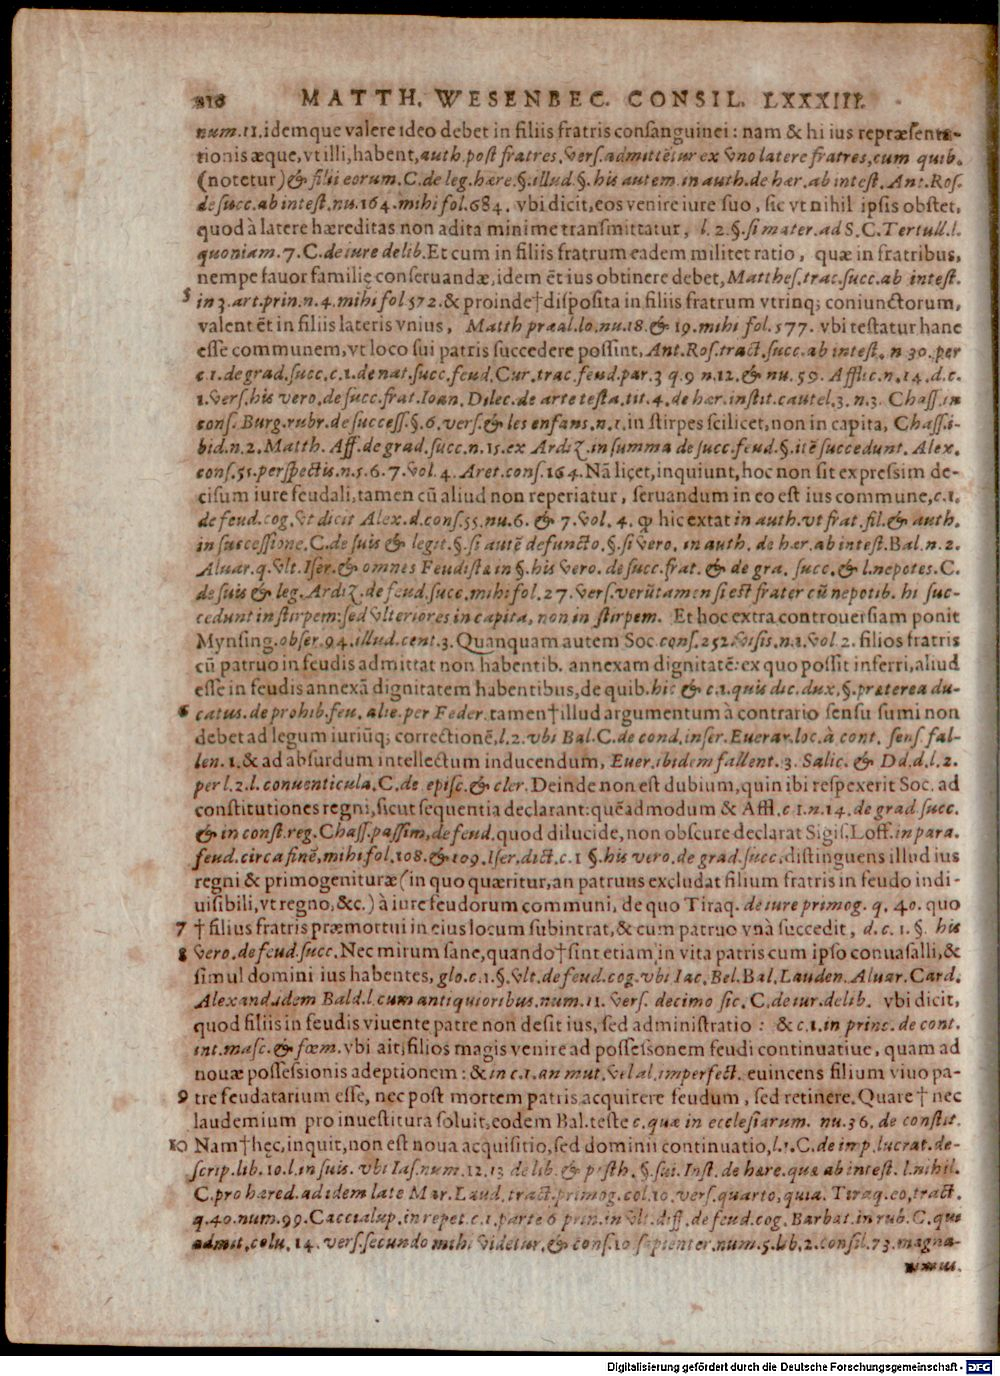 218 MATTH. WESENBEC. CONSIL. LXXXIII.
num.11.idemque valere ideo debet in filiis fratris consanguinei : nam & hi ius repræsenta-
tionis æque, vt illi, habent, auth.post fratres. vers.admittētur ex vno latere fratres,cum quib.
(notetur) & filii eorum.C.de leg.hære.§.illud.§.his autem.in auth.de hær.ab intest. Ant.Ros.
de succ.ab intest.nu.164.mihi fol.684. vbi dicit, eos venire iure suo , sic vt nihil ipsis obstet,
quod à latere hæreditas non adita minime transmittatur, l.2.§.si mater.ad S.C.Tertull.l.
quoniam.7.C.de iure delib.Et cum in filiis fratrum eadem militet ratio, quæ in fratribus,
nempe fauor familię conseruandæ, idem ēt ius obtinere debet, Matthes.trac.succ.ab intest.
5 in 3.art.prin.n.4.mihi fol 572.& proinde†disposita in filiis fratrum vtrinq; coniunctorum,
valent ēt in filiis lateris vnius, Matth præal.lo.nu.18.& 19.mihi fol.577. vbi testatur hanc
esse communem, vt loco sui patris succedere possint, Ant.Ros.tract.succ.ab intest. n 30.per
c.1.de grad.succ.c.1.de nat.succ.feud.Cur.trac.feud.par.3 q.9 n.12.& nu.59. Afflic.n.14.d.c.
1.vers.his vero.de succ.frat.Ioan.Dilec.de arte testa.tit.4.de hær.instit.cautel.3.n.3. Chass.in
cons. Burg.rubr.de success.§.6.vers.& les enfans.n.1.in stirpes scilicet, non in capita, Chass.i-
bid.n.2.Matth. Aff.de grad.succ.n.15.ex Ardiz.in summa de succ.feud.§.itē succedunt. Alex.
cons.55.perspectis.n.5.6.7.vol.4. Aret.cons.164.Nā licet, inquiunt, hoc non sit expressim de-
cisum iure feudali, tamen cū aliud non reperiatur, seruandum in eo est ius commune, c.1.
de feud.cog.vt dicit Alex.d.cons.55.nu.6. & 7.vol. 4. ꝙ hic extat in auth.vt frat.fil.& auth.
in successione.C.de suis & legit.§.si autē defuncto.§.si vero. in auth. de hær.ab intest.Bal.n.2.
Aluar.q.vlt.Iser.& omnes Feudistæ in §.his vero.de succ.frat. & de gra. succ.& l.nepotes.C.
de suis & leg.Ardiz.de feud.succ.mihi fol.27.vers.verūtamen si est frater cū nepotib. hi suc-
cedunt in stirpem:sed vlteriores in capita, non in stirpem. Et hoc extra controuersiam ponit
Mynsing.obser.94.illud.cent.3.Quanquam autem Soc.cons.252.visis.n.1.vol 2. filios fratris
cū patruo in feudis admittat non habentib. annexam dignitatē: ex quo possit inferri, aliud
esse in feudis annexā dignitatem habentibus, de quib.hic & c.1.quis dic.dux.§.præterea du-
6 catus.de prohib.feu. alie.per Feder.tamen†illud argumentum à contrario sensu sumi non
debet ad legum iuriūq; correctionē,l.2.vbi Bal.C.de cond.inser.Euerar.loc.à cont. sens.fal-
len. 1.& ad absurdum intellectum inducendum, Euer.ibidem fallent.3. Salic. & Dd.d.l.2.
per l.2.l.conuenticula.C.de episc.& cler. Deinde non est dubium, quin ibi respexerit Soc. ad
constitutiones regni, sicut sequentia declarant: quēadmodum & Affl.c 1.n.14.de grad.succ.
& in const.reg.Chass.passim,de feud.quod dilucide, non obscure declarat Sigis.Loff.in para.
feud.circa finē,mihi fol.108.& 109.Iser.dict.c.1 §.his vero.de grad.succ.distinguens illud ius
regni & primogenituræ (in quo quæritur, an patruus excludat filium fratris in feudo indi-
uisibili, vt regno, &c.) à iure feudorum communi, de quo Tiraq. de iure primog. q. 40. quo
7 † filius fratris præmortui in eius locum subintrat, & cum patruo vnà succedit, d.c.1.§. his
8 vero.de feud.succ.Nec mirum sane, quando†sint etiam in vita patris cum ipso conuasalli, &
simul domini ius habentes, glo.c.1.§.vlt.de feud.cog.vbi Iac.Bel.Bal.Lauden.Aluar.Card.
Alexand.idem Bald.l.cum antiquioribus.num.11. vers. decimo sic.C.de iur.delib. vbi dicit,
quod filiis in feudis viuente patre non desit ius, sed administratio : & c.1.in princ.de cont.
int.masc.& fœm.vbi ait, filios magis venire ad possessonem feudi continuatiue, quam ad
nouæ possessionis adeptionem : & in c.1.an mut.vel al.imperfect. euincens filium viuo pa-
9 tre feudatarium esse, nec post mortem patris acquirere feudum, sed retinere. Quare† nec
laudemium pro inuestitura soluit, eodem Bal.teste c.quæ in ecclesiarum. nu.36. de constit.
10 Nam†hęc, inquit, non est noua acquisitio, sed dominii continuatio, l.1.C.de imp.lucrat.de-
scrip.lib.10.l.in suis. vbi Ias.num.12.13 de lib.& posth. §.sui.Inst.de hære.quæ ab intest.l.nihil.
C.pro hæred.ad idem late Mar.Laud.tract.primog.col.10.vers.quarto,quia. Tiraq.eo.tract.
q.40.num.99.Caccialup.in repet.c.1.parte 6 prin.in vlt.diff.de feud.cog.Barbat.in rub.C.qui
admit.colu.14. vers.secundo mihi videtur.& cons.10 sapienter.num.5.lib.2.consil.73.magna-
Digitalisierung gefördert durch die Deutsche Forschungsgemeinschaft - DFG